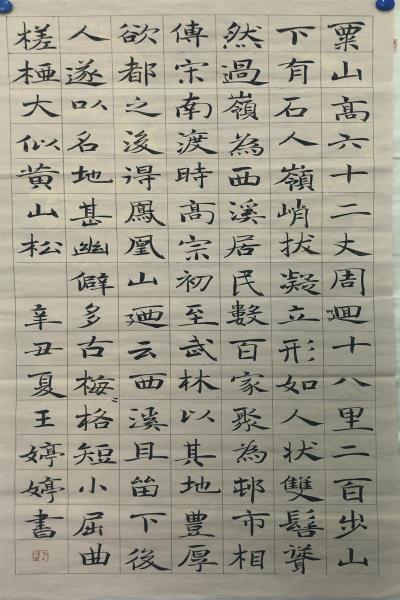 粟山高六十二丈周廻十八里二百步山
下有石人嶺峭拔凝立形如人狀雙髻聳
然過嶺為西溪居民數百家聚為邨市相
傳宋南渡時高宗初至武林以其地豐厚
欲都之後得鳳凰山廼云西溪且留下後
人遂以名地甚幽僻多古梅〻格短小屈曲
槎椏大似黄山松 辛丑夏王婷婷書